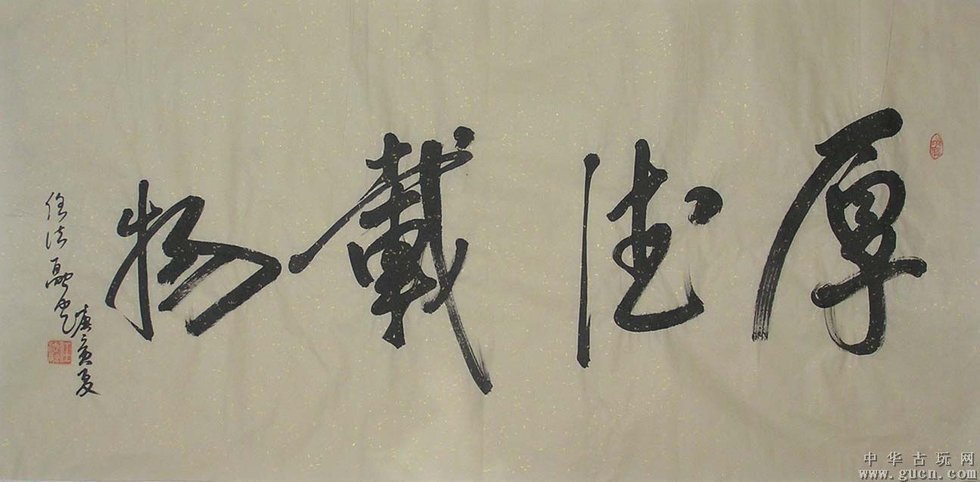 厚德載物
庚寅夏
任法融書
中华古玩网
www.gucn.com